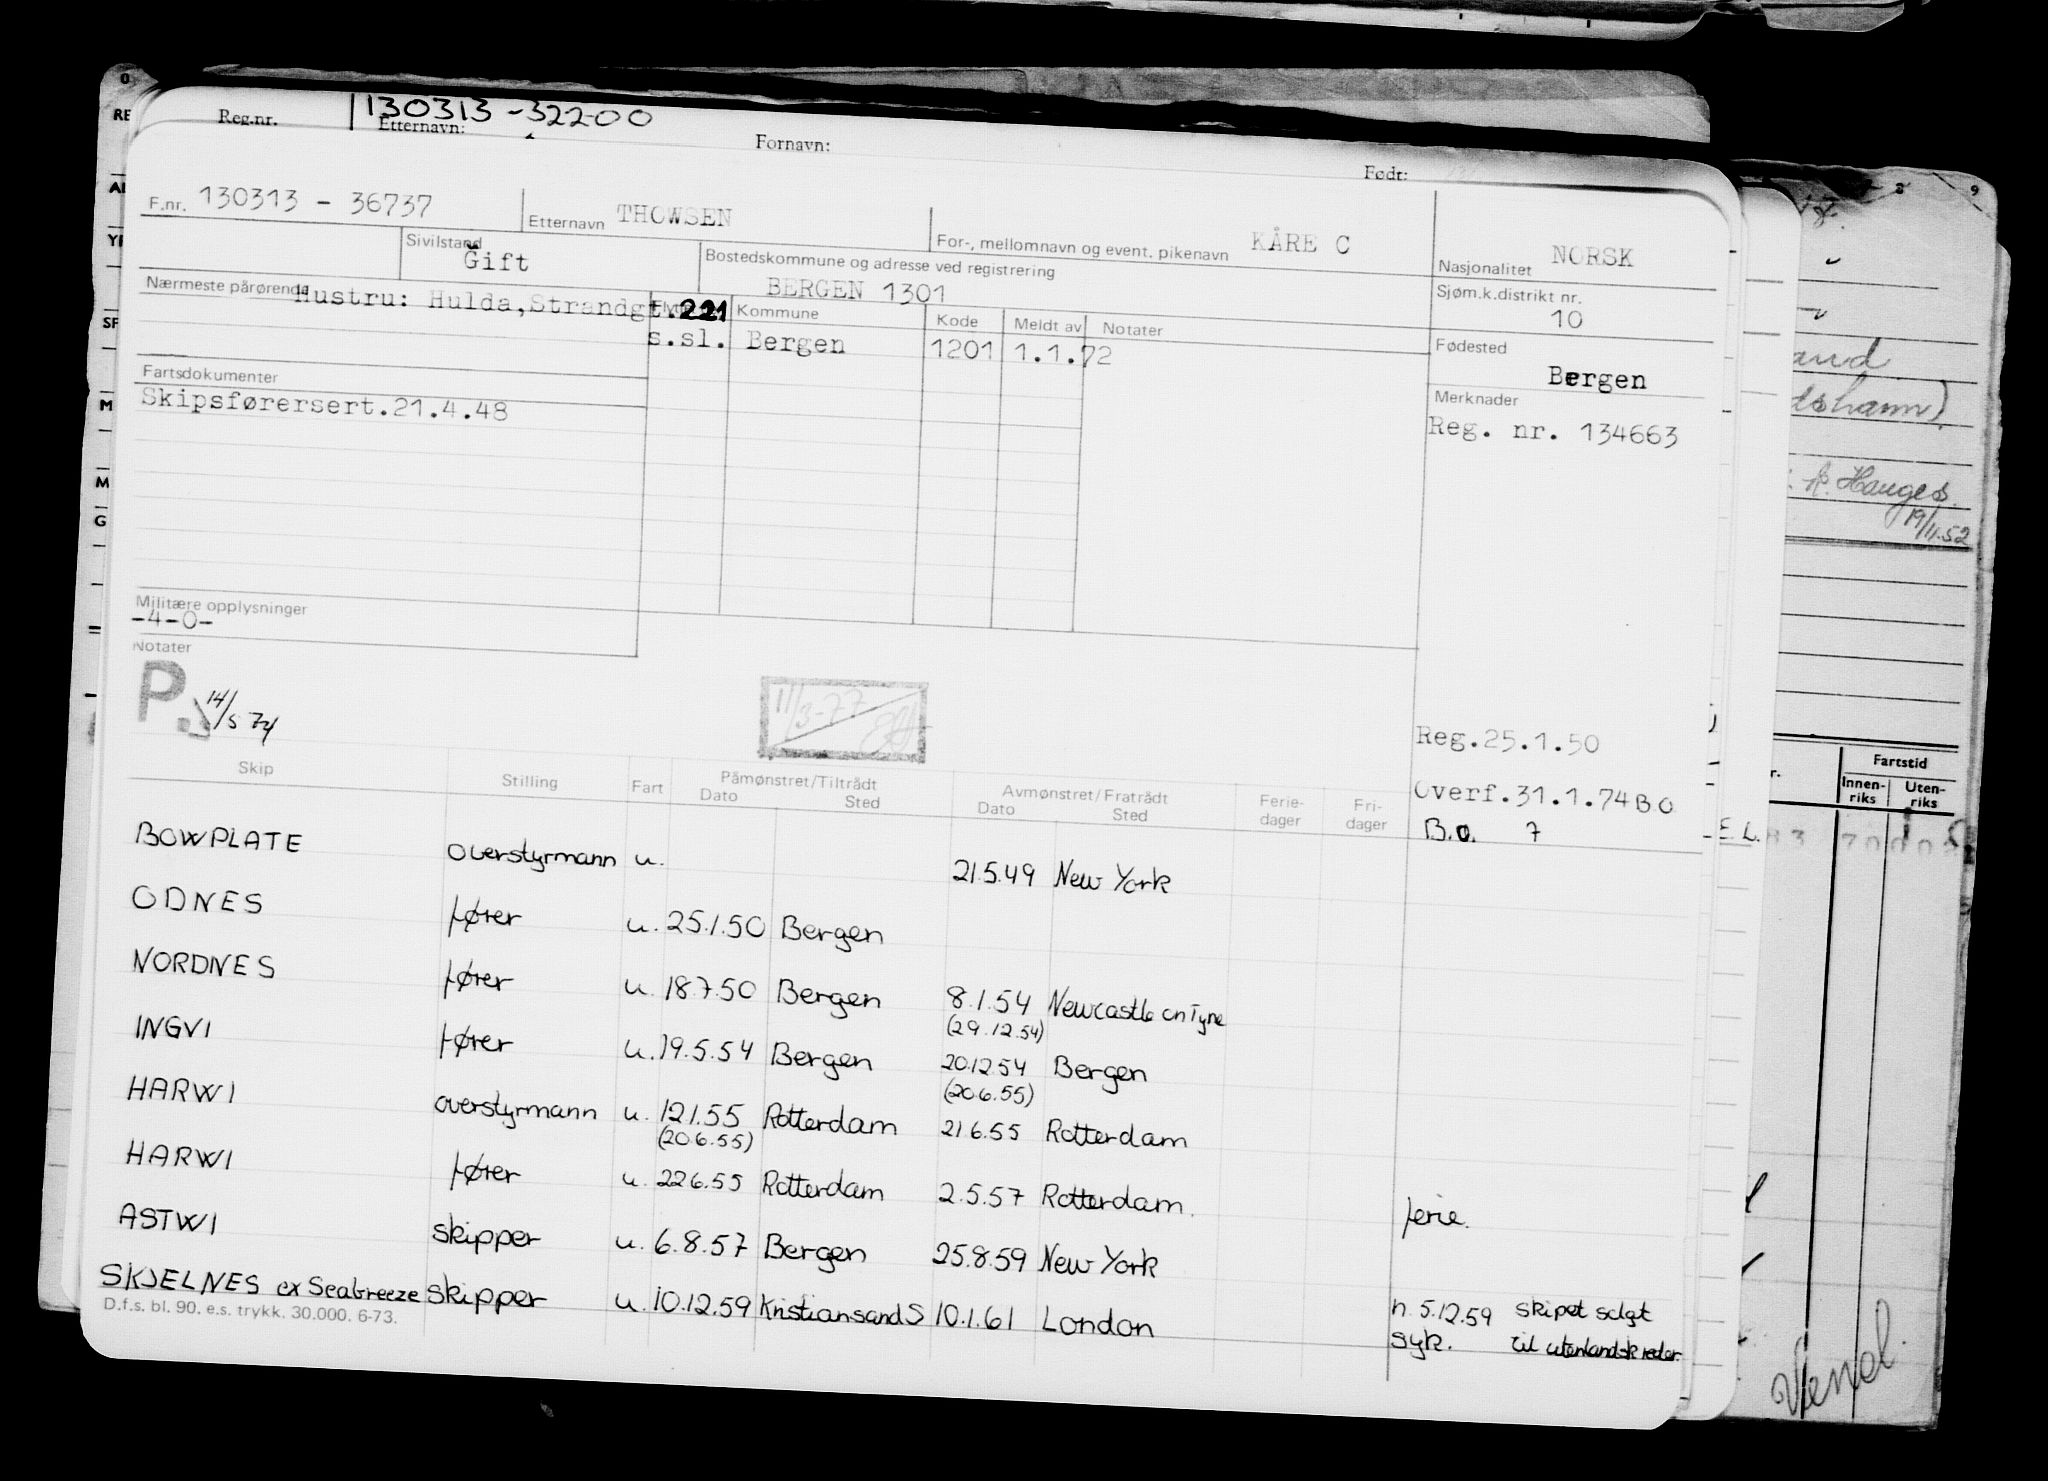 130313-32200
Reg.nr. Etternavn: Fornavn: Født:
F.nr. 130313 - 36737 Etternavn THOWSEN For-, mellomnavn og event. pikenavn KÅRE C Nasjonalitet NORSK
Sivilstand Gift Bostedskommune og adresse ved registrering BERGEN 1301 Sjøm.k.distrikt nr. 10
Nærmeste pårørende Hustru: Hulda,Strandgt.221 Kommune Kode Meldt av Notater
s.sl. Bergen 1201 1.1.72 Fødested Bergen
Fartsdokumenter
Skipsførersert.21.4.48
Merknader
Reg. nr. 134663
Militære opplysninger
-4-0-
Notater
P. 14/5 74
11/3-77
Reg.25.1.50
Overf.31.1.74 B O
B.o. 7
Skip Stilling Fart Påmønstret/Tiltrådt Dato Sted Avmønstret/Fratrådt Dato Sted Ferie-dager Fri-dager
BOWPLATE overstyrmann u. 21.5.49 New York
ODNES fører u. 25.1.50 Bergen
NORDNES fører u. 18.7.50 Bergen 8.1.54 Newcastle on Tyne
(29.12.54)
INGVI fører u. 19.5.54 Bergen 20.12.54 Bergen
(20.6.55)
HARWI overstyrmann u. 12.1.55 Rotterdam 21.6.55 Rotterdam
(20.6.55)
HARWI fører u. 22.6.55 Rotterdam 2.5.57 Rotterdam. ferie.
ASTWI skipper u. 6.8.57 Bergen 25.8.59 New York
SKJELNES ex Seabreeze skipper u. 10.12.59 Kristiansand S 10.1.61 London h. 5.12.59 skipet solgt
syk. til utenlandsk reder.
D.f.s. bl. 90. e.s. trykk. 30.000. 6-73.
8 9
A. Hauges
19/11.52
Fartstid
Innen-riks Uten-riks
E. L.